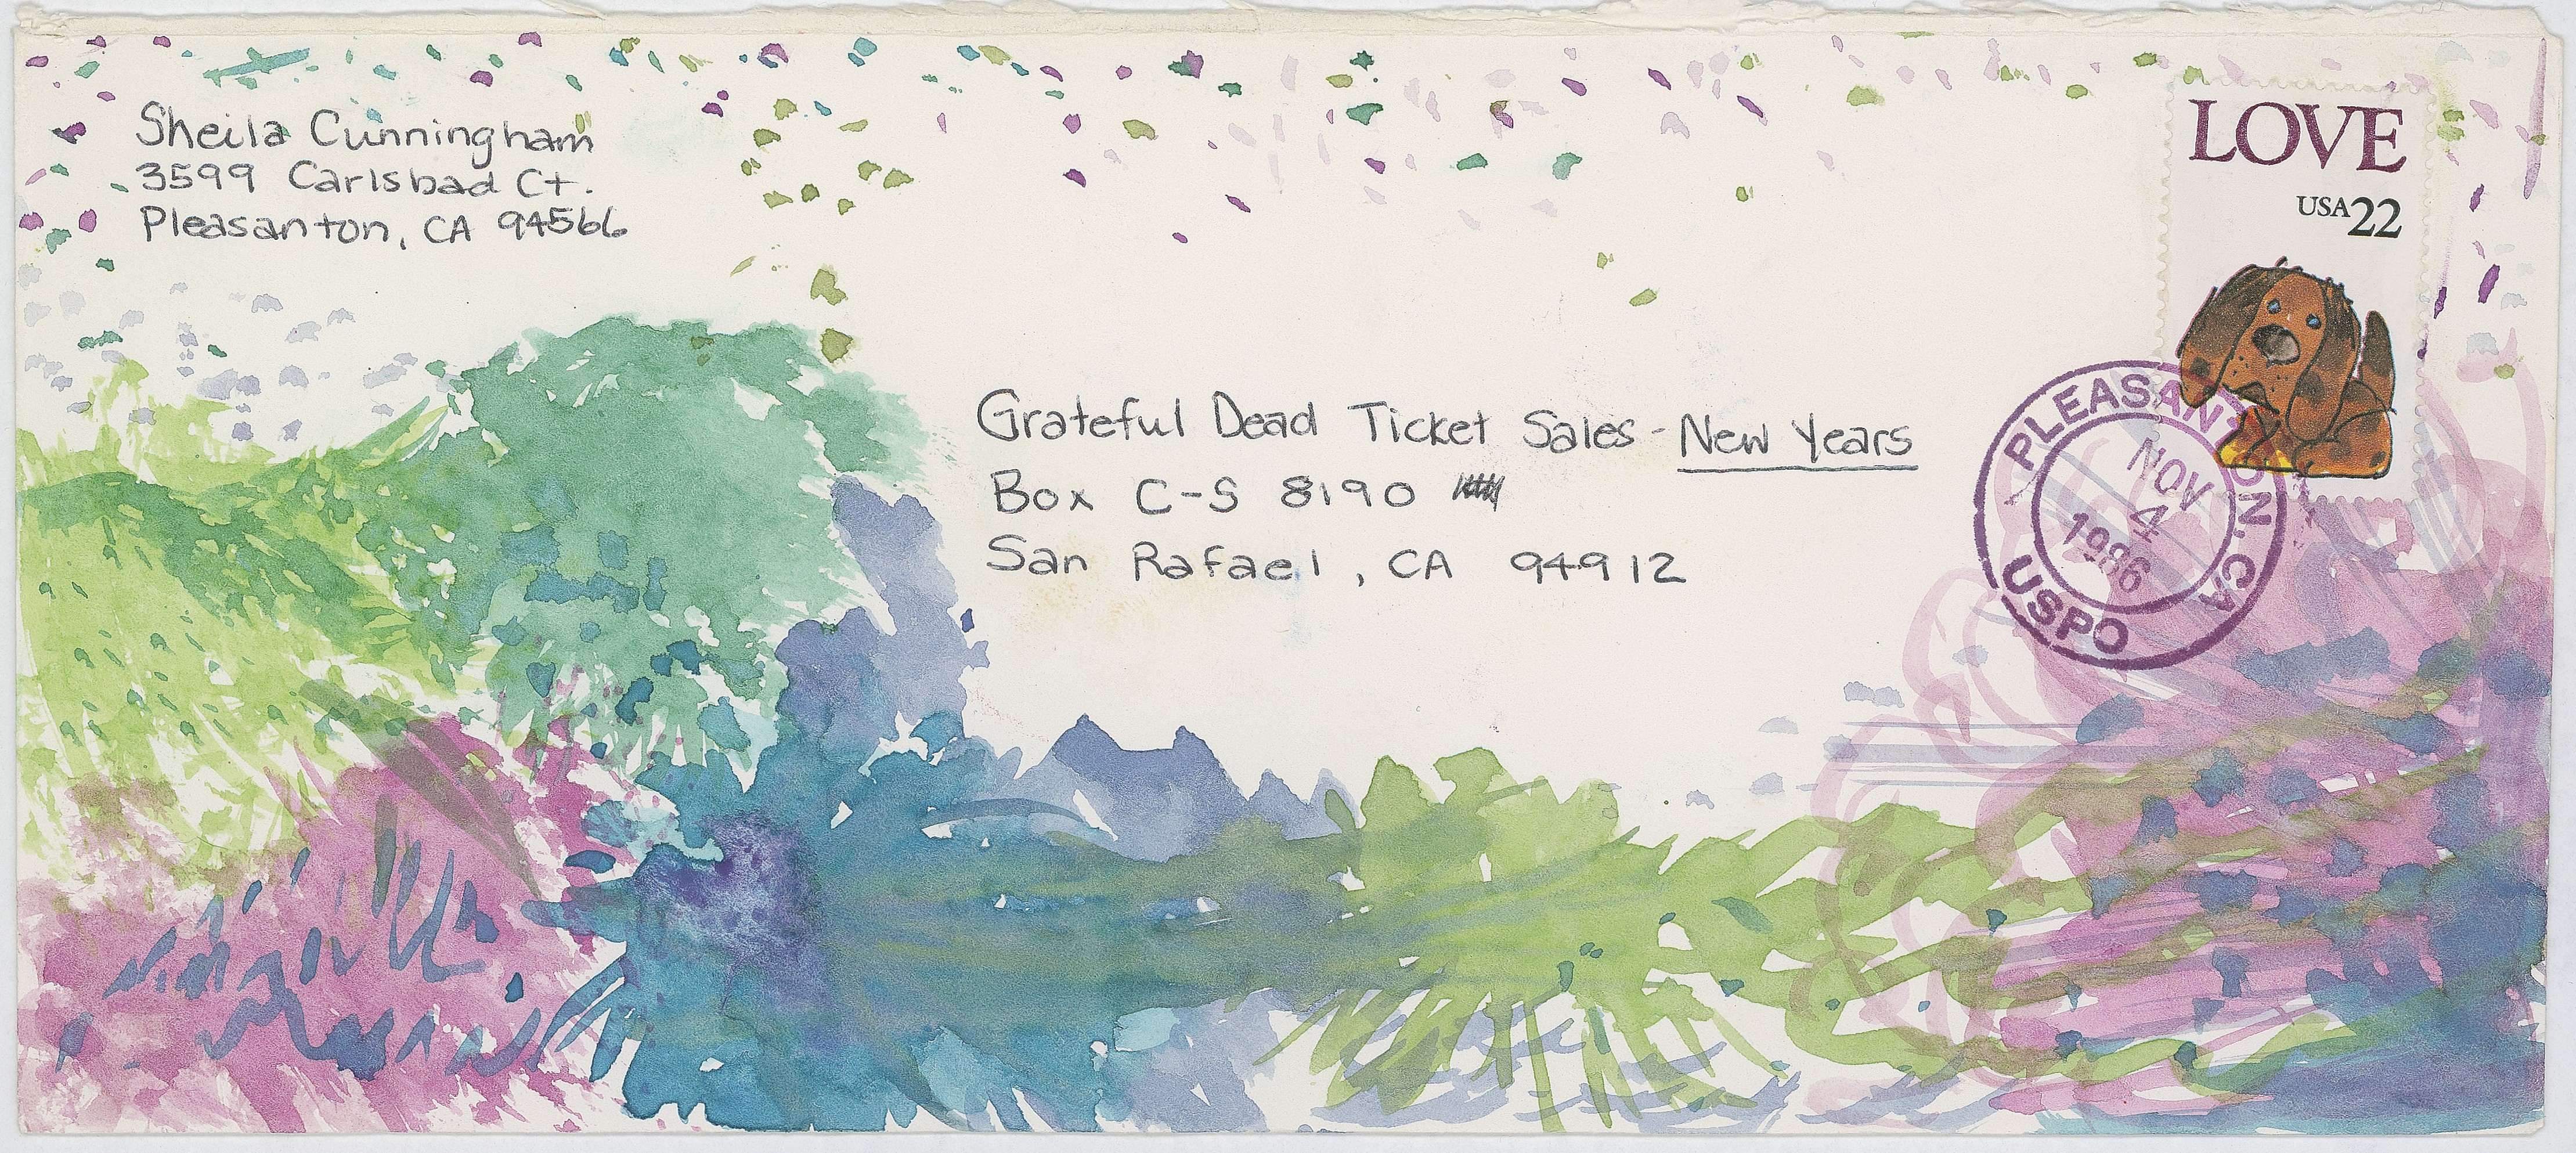 Sheila Cunningham
3599 Carlsbad Ct.
Pleasanton, CA 94566
LOVE
USA22
Grateful Dead Ticket Sales - New Years
Box C-S 8190
San Rafael, CA 94912
PLEASANTON, CA
NOV
4
1986
USPO